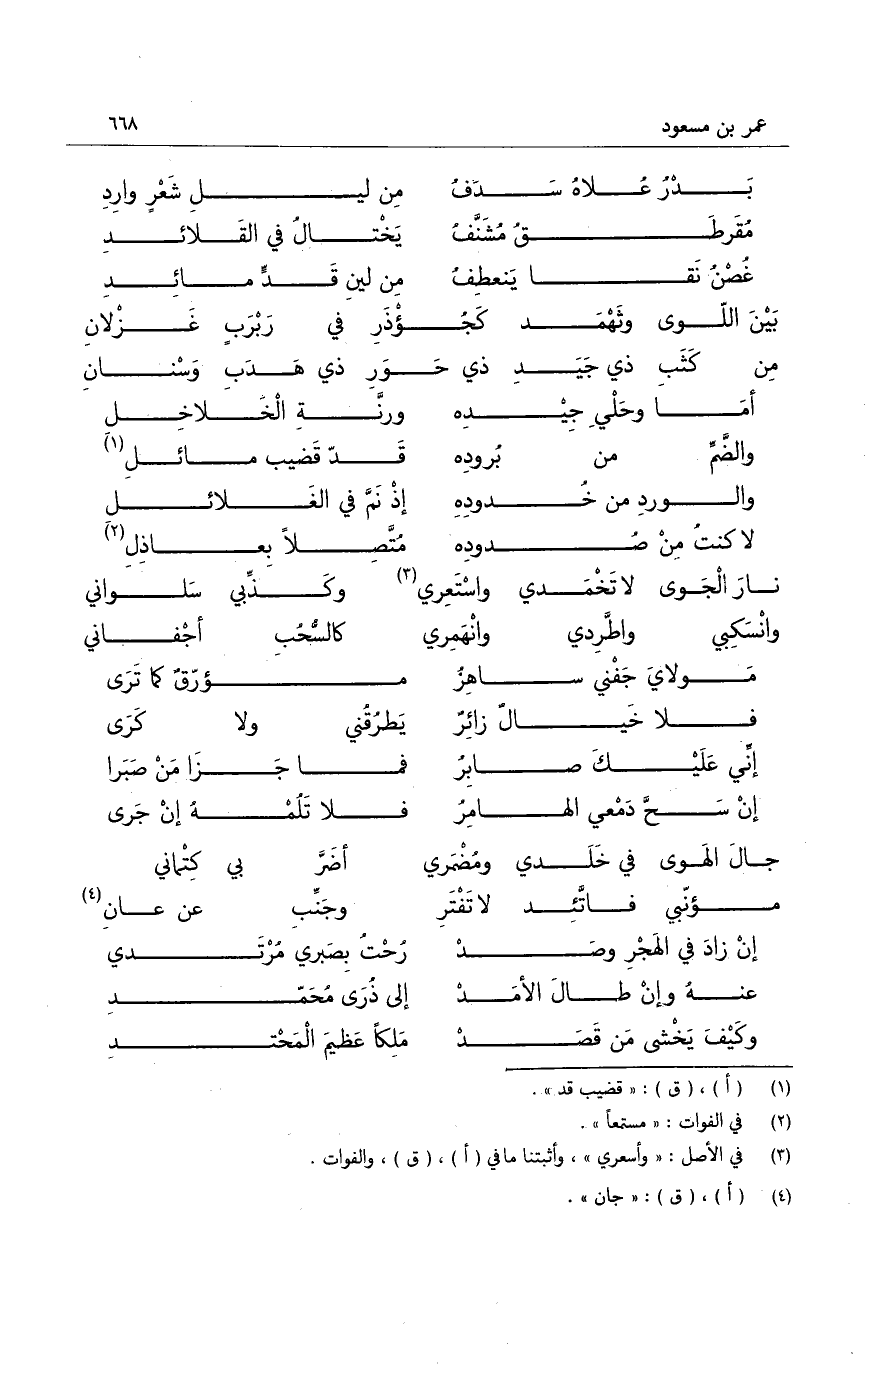 عمر بن مسعود ٦٦٨
بَـدْرُ عُـلاهُ سَـدَفُ من ليـلِ شَعْرٍ وارِدِ
مُقَرطَـقُ مُشَنَّفُ يَخْتـالُ في القَـلائـدِ
غُصْنُ نَقـا يَنعطِفُ مِن لينِ قَـدٍّ مـائِـدِ
بَيْنَ اللّـوى وثَهْمَـدِ كَجُـؤْذَرٍ في رَبْرَبٍ غَـزْلانِ
مِن كَثَبٍ ذي جَيَـدٍ ذي حَـوَرٍ ذي هَـدَبٍ وَسْنـانِ
أمَـا وحَلْيِ جِيْـدِهِ ورنَّـةِ الْخَـلاخِـلِ
والضَّمِّ من بُرودِهِ قَـدّ قَضيبٍ مـائـلِ(١)
والـوردِ من خُـدودِهِ إذْ نَمَّ في الغَـلائـلِ
لا كنتُ مِنْ صُـدودِهِ مُتَّصِـلاً بعـاذِلِ(٢)
نـارَ الْجَـوى لا تَخْمَـدي واسْتَعِري(٣) وكَـذِّبي سَلـواني
وانْسَكِبي واطَّرِدي وانْهَمِري كالسُّحْبِ أجْفـاني
مَـولايَ جَفْني سـاهِرُ مـؤرّقٌ كما تَرَى
فـلا خَيـالٌ زائِرٌ يَطرُقُني ولا كَرَى
إنّي عَلَيْـكَ صـابِرُ فمـا جَـزَا مَنْ صَبَرا
إنْ سَـحَّ دَمْعي الهـامِرُ فـلا تَلُمْـهُ إنْ جَرى
جـالَ الهَـوى في خَلَـدي ومُضْمَري أضَرَّ بي كِتْماني
مـؤنّبي فـاتَّئِـدِ لا تَفْتَرِ وجَنِّبِ عن عـانِ(٤)
إنْ زادَ في الهَجْرِ وصَـدْ رُحْتُ بِصَبري مُرْتَـدي
عنـهُ وإنْ طـالَ الأمَـدْ إلى ذُرَى مُحَمّـدِ
وكَيْفَ يَخْشى مَن قَصَـدْ مَلِكاً عَظيمَ الْمَحْتـدِ
(١) ( أ ) ، ( ق ) : « قضيب قد » .
(٢) في الفوات : « مستمعاً » .
(٣) في الأصل : « وأسعري » ، وأثبتنا ما في ( أ ) ، ( ق ) ، والفوات .
(٤) ( أ ) ، ( ق ) : « جان » .